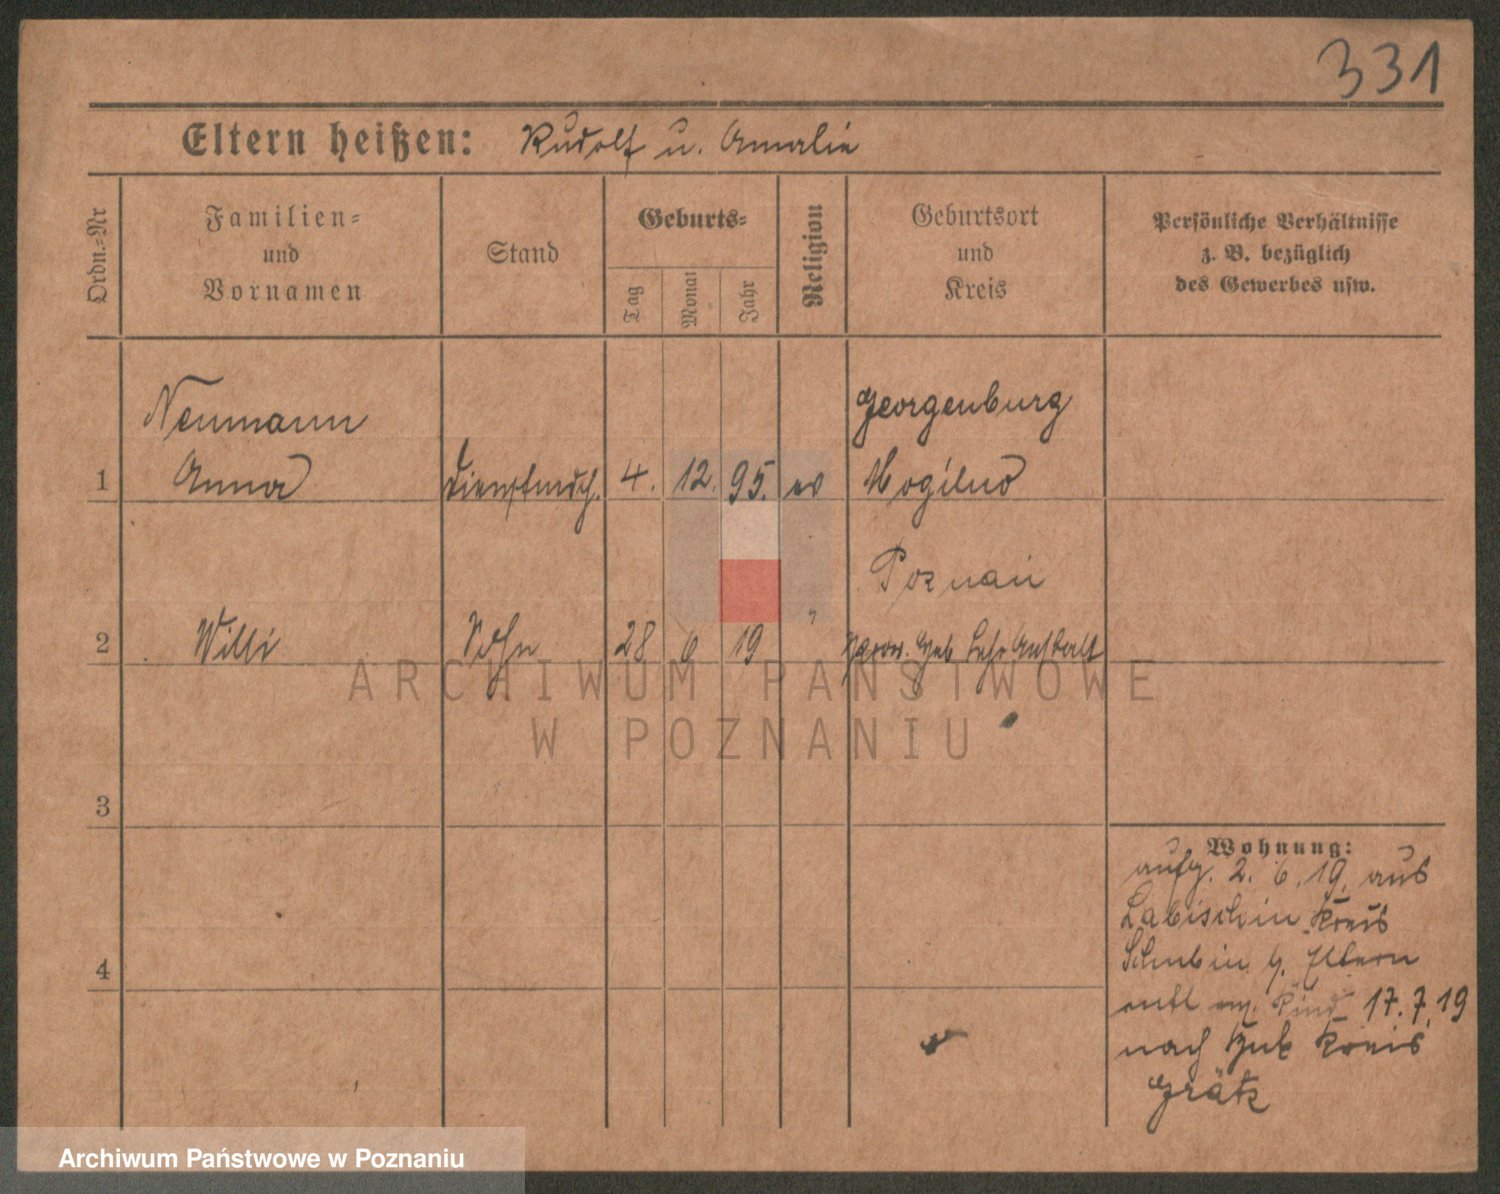 331
Eltern heißen: Rudolf u. Amalie
Ordn.=Nr
Familien=
und
Vornamen
Stand
Geburts=
Tag
Monat
Jahr
Religion
Geburtsort
und
Kreis
Persönliche Verhältnisse
z. B. bezüglich
des Gewerbes usw.
Neumann
Georgenburg
1 Anna Dienstmdch. 4. 12. 95. ev Mogilno
Poznań
2 Willi Sohn 28 6 19 " Prow. Heb Lehr Anstalt
3
4
Wohnung:
aufg. 2. 6. 19. aus
Labischin Kreis
Schubin b. Eltern
entl m. Kind 17. 7. 19
nach Kreis
Grätz
ARCHIWUM PAŃSTWOWE
W POZNANIU
Archiwum Państwowe w Poznaniu